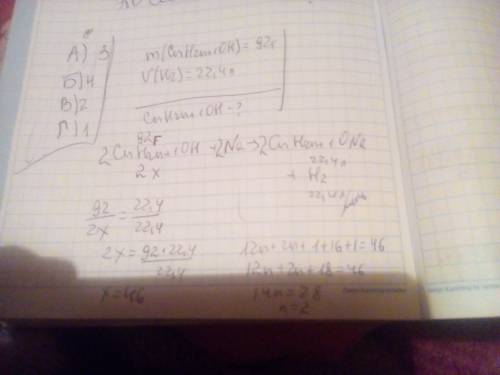 А) 3
Б) 4
В) 2
Г) 1
m(CnH2n+1OH) = 92г
V(H2) = 22,4л
CnH2n+1OH - ?
92г
2CnH2n+1OH + 2Na → 2CnH2n+1ONa
2x
22,4л
+ H2
92/2x = 22,4/22,4
2x = 92*22,4/22,4
x = 46
12n + 2n + 1 + 16 + 1 = 46
12n + 2n + 18 = 46
14n = 28
n = 2